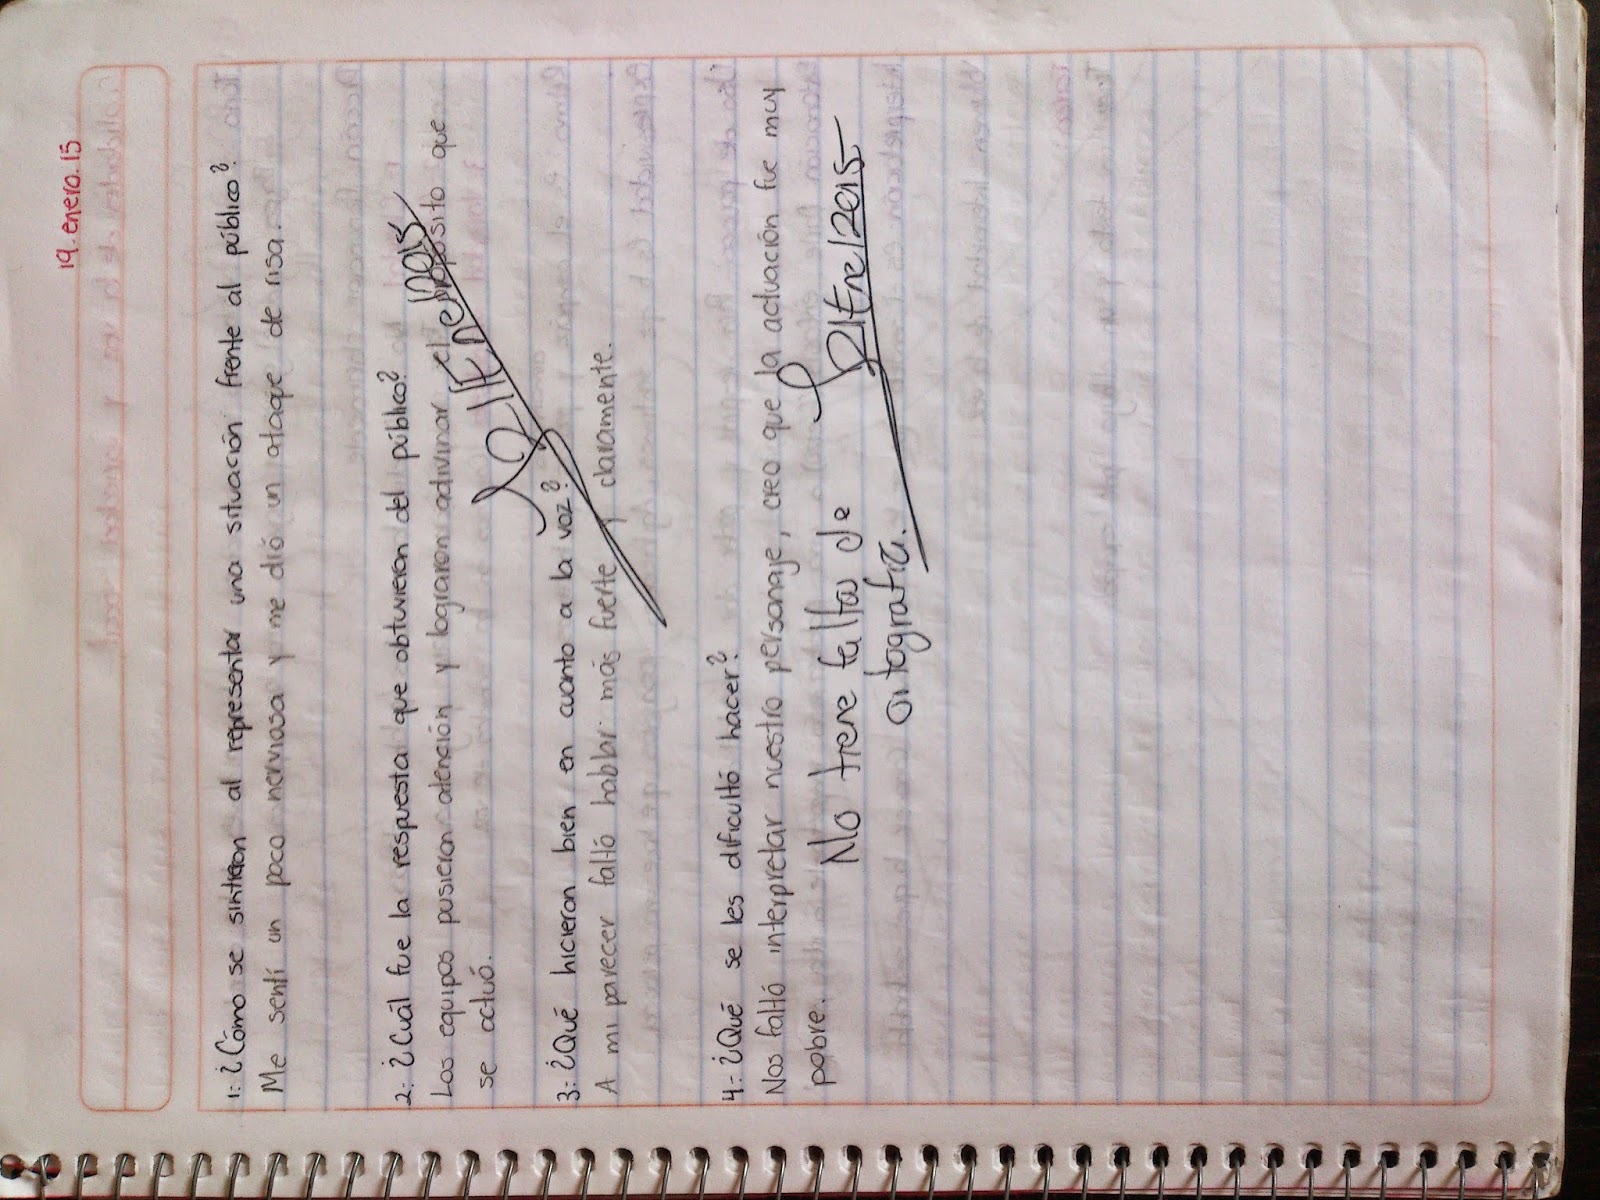 19.enero.15
1.- ¿Cómo se sintieron al representar una situación frente al público?
Me sentí un poco nerviosa y me dió un ataque de risa.
2.- ¿Cuál fue la respuesta que obtuvieron del público?
Los equipos pusieron atención y lograron adivinar el propósito que
se actuó.
21/Ene/2015
3.- ¿Qué hicieron bien en cuanto a la voz?
A mi parecer faltó hablar más fuerte y claramente.
4.- ¿Qué se les dificultó hacer?
Nos faltó interpretar nuestro personaje, creo que la actuación fue muy
pobre.
No tiene faltas de
ortografía.
21/Ene/2015